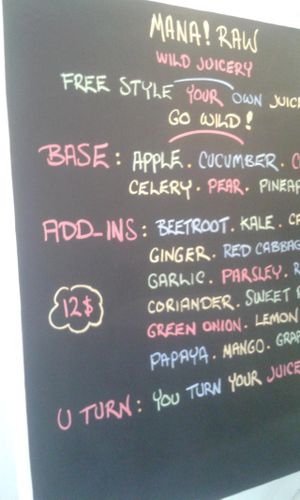 MANA! RAW
WILD JUICERY
FREE STYLE YOUR OWN JUICE
GO WILD!
BASE: APPLE. CUCUMBER.
CELERY. PEAR.
ADD-INS: BEETROOT. KALE.
GINGER. RED
GARLIC. PARSLEY.
12$
CORIANDER. SWEET
GREEN ONION. LEMON
PAPAYA. MANGO.
U TURN: YOU TURN YOUR JUICE